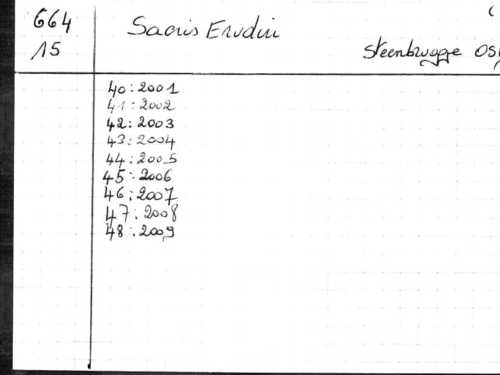 664
15
Sacris Erudiri
Steenbrugge OS
40:2001
41:2002
42:2003
43:2004
44:2005
45:2006
46:2007
47:2008
48:2009